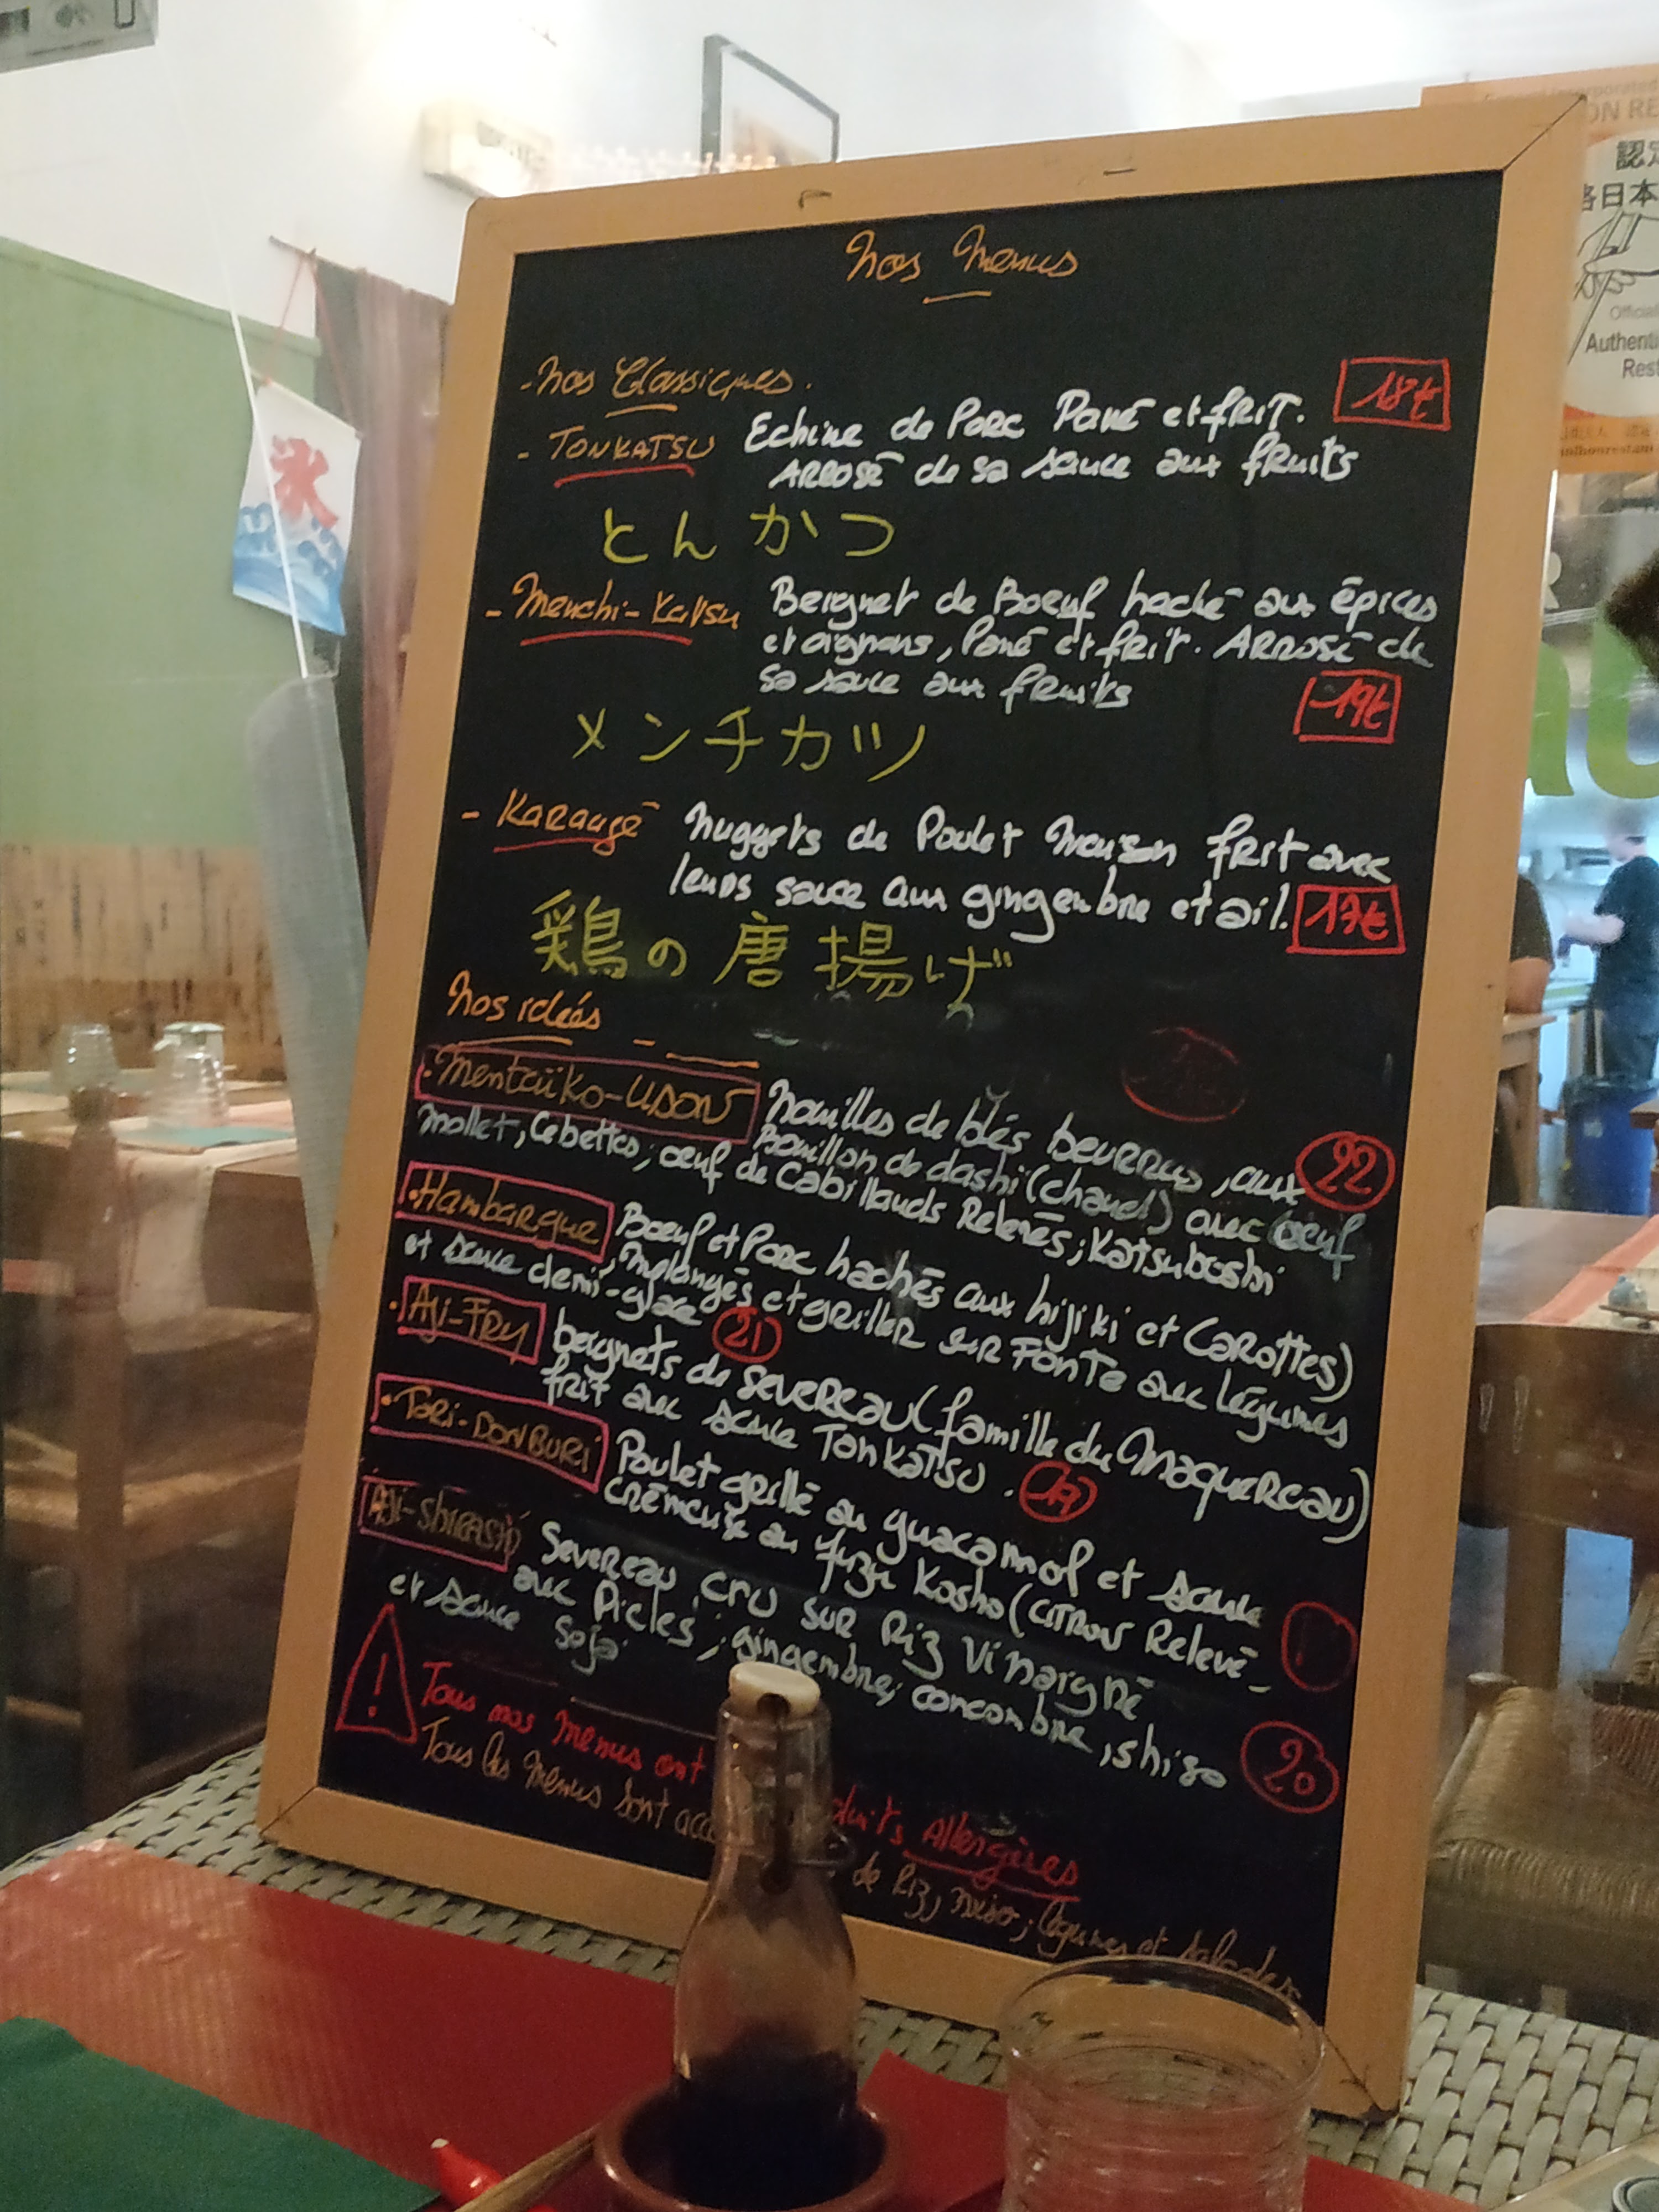 Nos Menus
- Nos Classiques.
- TONKATSU Echine de Porc Pané et frit. 18€
Arrosé de sa sauce aux fruits
とんかつ
- Menchi-Katsu Beignet de Boeuf haché aux épices
et oignons, Pané et frit. Arrosé de
sa sauce aux fruits 19€
メンチカツ
- Karaagé Nuggets de Poulet Maison frit avec
leurs sauce aux gingembre et ail. 17€
鶏の唐揚げ
Nos idées
• Mentaïko-UDON Nouilles de blés beurrus, aux 22
Bouillon de dashi (chaud) avec oeuf
mollet, Cebettes; oeuf de Cabillauds Relevés; Katsuboshi
• Hambargue Boeuf et Porc hachés aux hijiki et Carottes)
, mélangés et griller sur Fonte avec légumes
et sauce demi-glace 21
• Aji-Fry beignets de Severeau (famille du Maquereau)
frit avec sauce Tonkatsu. 19
• Tori-DONBURI Poulet grillé au guacamol et sauce
crémeuse au Yuzu Kosho (citron Relevé
Aji-Shirashi Severeau cru sur Riz Vinaigré
avec Picles; gingembre; concombre, shiso
et sauce Soja 20
! Tous nos Menus ont duits Allergières
Tous les Menus sont acc de Riz, miso; légumes et salades
水
認定
日本
ON RE
Official
Authenti
Rest